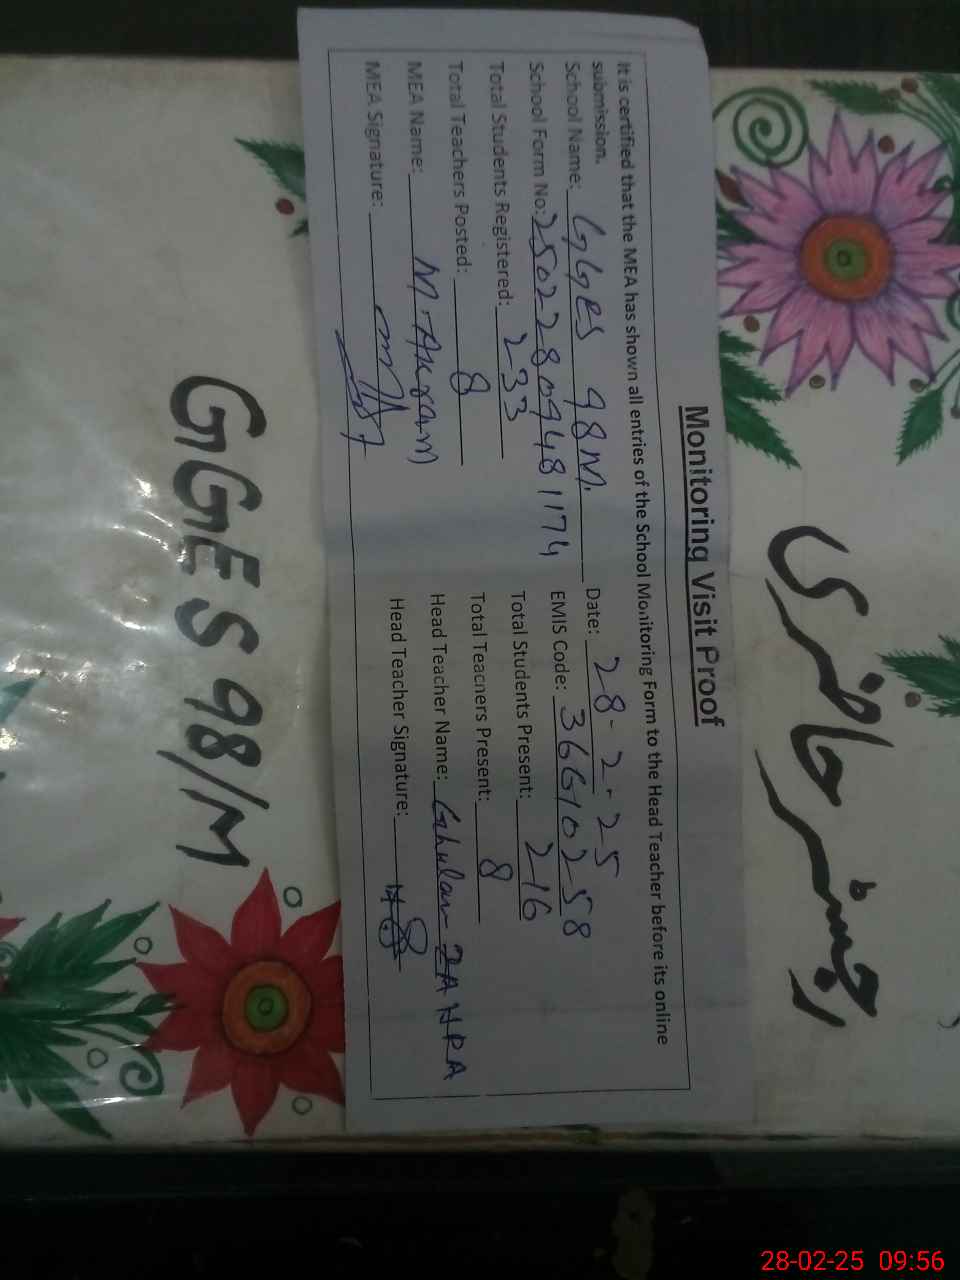 رجسٹر حاضری
Monitoring Visit Proof
It is certified that the MEA has shown all entries of the School Monitoring Form to the Head Teacher before its online
submission.
School Name: GGES 98M. Date: 28-2-25
School Form No: 25022809481174 EMIS Code: 36610258
Total Students Registered: 233 Total Students Present: 216
Total Teachers Posted: 8 Total Teachers Present: 8
MEA Name: M. Akram Head Teacher Name: Ghulam ZAHRA
MEA Signature: Head Teacher Signature:
GGES 98/M
28-02-25 09:56